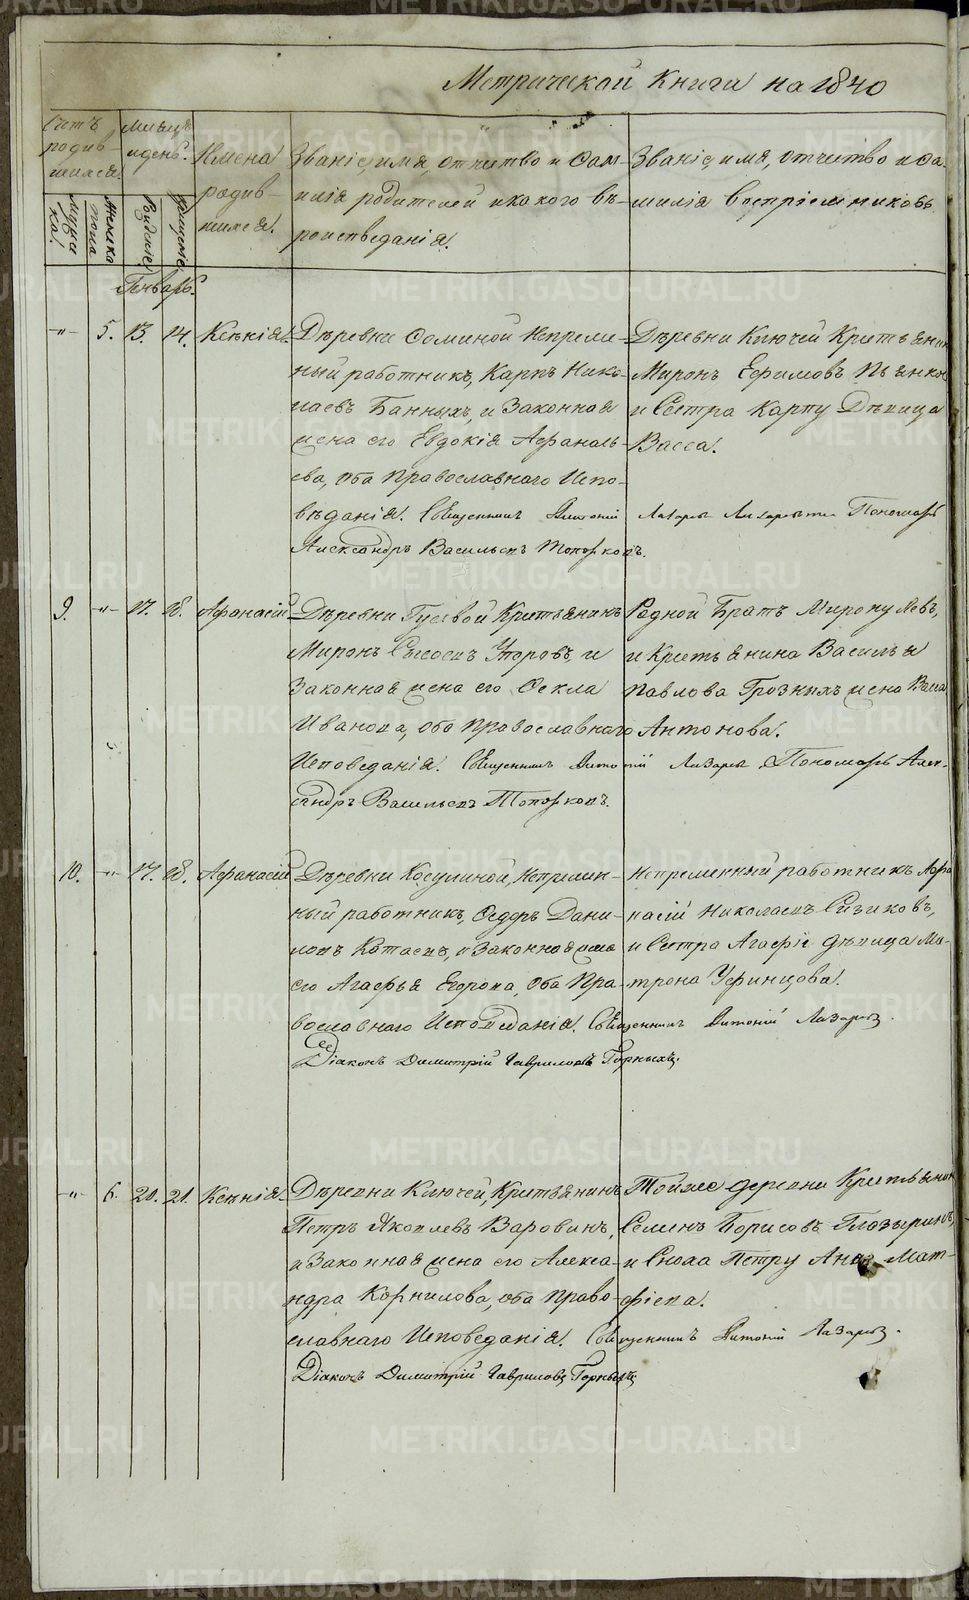 Метрической Книги на 1840
Счетъ родившихся.
Месяцъ и день.
Имена родившихся.
Званіе, имя, отчество и Фамилія родителей и какого вѣроисповеданія.
Званіе, имя, отчество и Фамилія воспріемниковъ.
Мужеска.
Женска пола
Рожденіе
Крещеніе
Генварь.
-"- 5. 13. 14. Ксѣнія.
Дѣревни Соминой Непреме-
ный работникъ, Карпъ Нико-
лаевъ Банныхъ, и Законная
жена его Евдокія Афанась-
ева, оба Православнаго Испо-
вѣданія. Священникъ Антоній Лазаревъ Пономарь
Александръ Васильевъ Топорковъ.
Дѣревни Ключей Крестьянин
Миронъ Ефимовъ Пьянков
и Сестра Карпу Дѣвица
Васса.
9. -"- 17. 18. Афанасій
Дѣревни Гусевой Крестьянинъ
Миронъ Сысоевъ Упоровъ, и
Законная жена его Фекла
Иванова, оба Православнаго
Исповеданія. Священникъ Антоній Лазаревъ Пономарь Алек-
сандръ Васильевъ Топорковъ.
Родной Братъ Мирону Левъ,
и Крестьянина Василья
Павлова Грозныхъ жена Васса
Антонова.
10. -"- 17. 18. Афанасій
Дѣревни Косулиной, Непремен-
ный работникъ, Федоръ Дани-
ловъ Котаевъ, и Законная жена
его Агафья Егорова, Оба Пра-
вославнаго Исповѣданія. Священникъ Антоній Лазаревъ.
Діаконъ Димитрій Гавриловъ Горныхъ
Непременный работникъ Афа
насій Николаевъ Сизиковъ,
и Сестра Агафьи дѣвица Ма-
трона Уфинцова.
-"- 6. 20. 21. Ксѣнія.
Дѣревни Ключей, Крестьянинъ
Петръ Яковлевъ Варовинъ,
и Законная жена его Алекса-
ндра Корнилова, оба Право-
славнаго Исповеданія. Священникъ Антоній Лазаревъ.
Діаконъ Димитрій Гавриловъ Горныхъ
Той же деревни Крестьянин
Семенъ Борисовъ Глазыринъ,
и Сноха Петру Анна Мат-
фіева.
METRIKI.GASO-URAL.RU